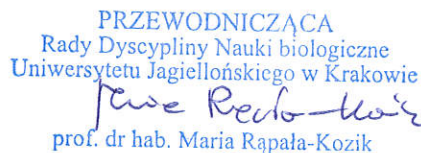 PRZEWODNICZĄCA
Rady Dyscypliny Nauki biologiczne
Uniwersytetu Jagiellońskiego w Krakowie
prof. dr hab. Maria Rąpała-Kozik